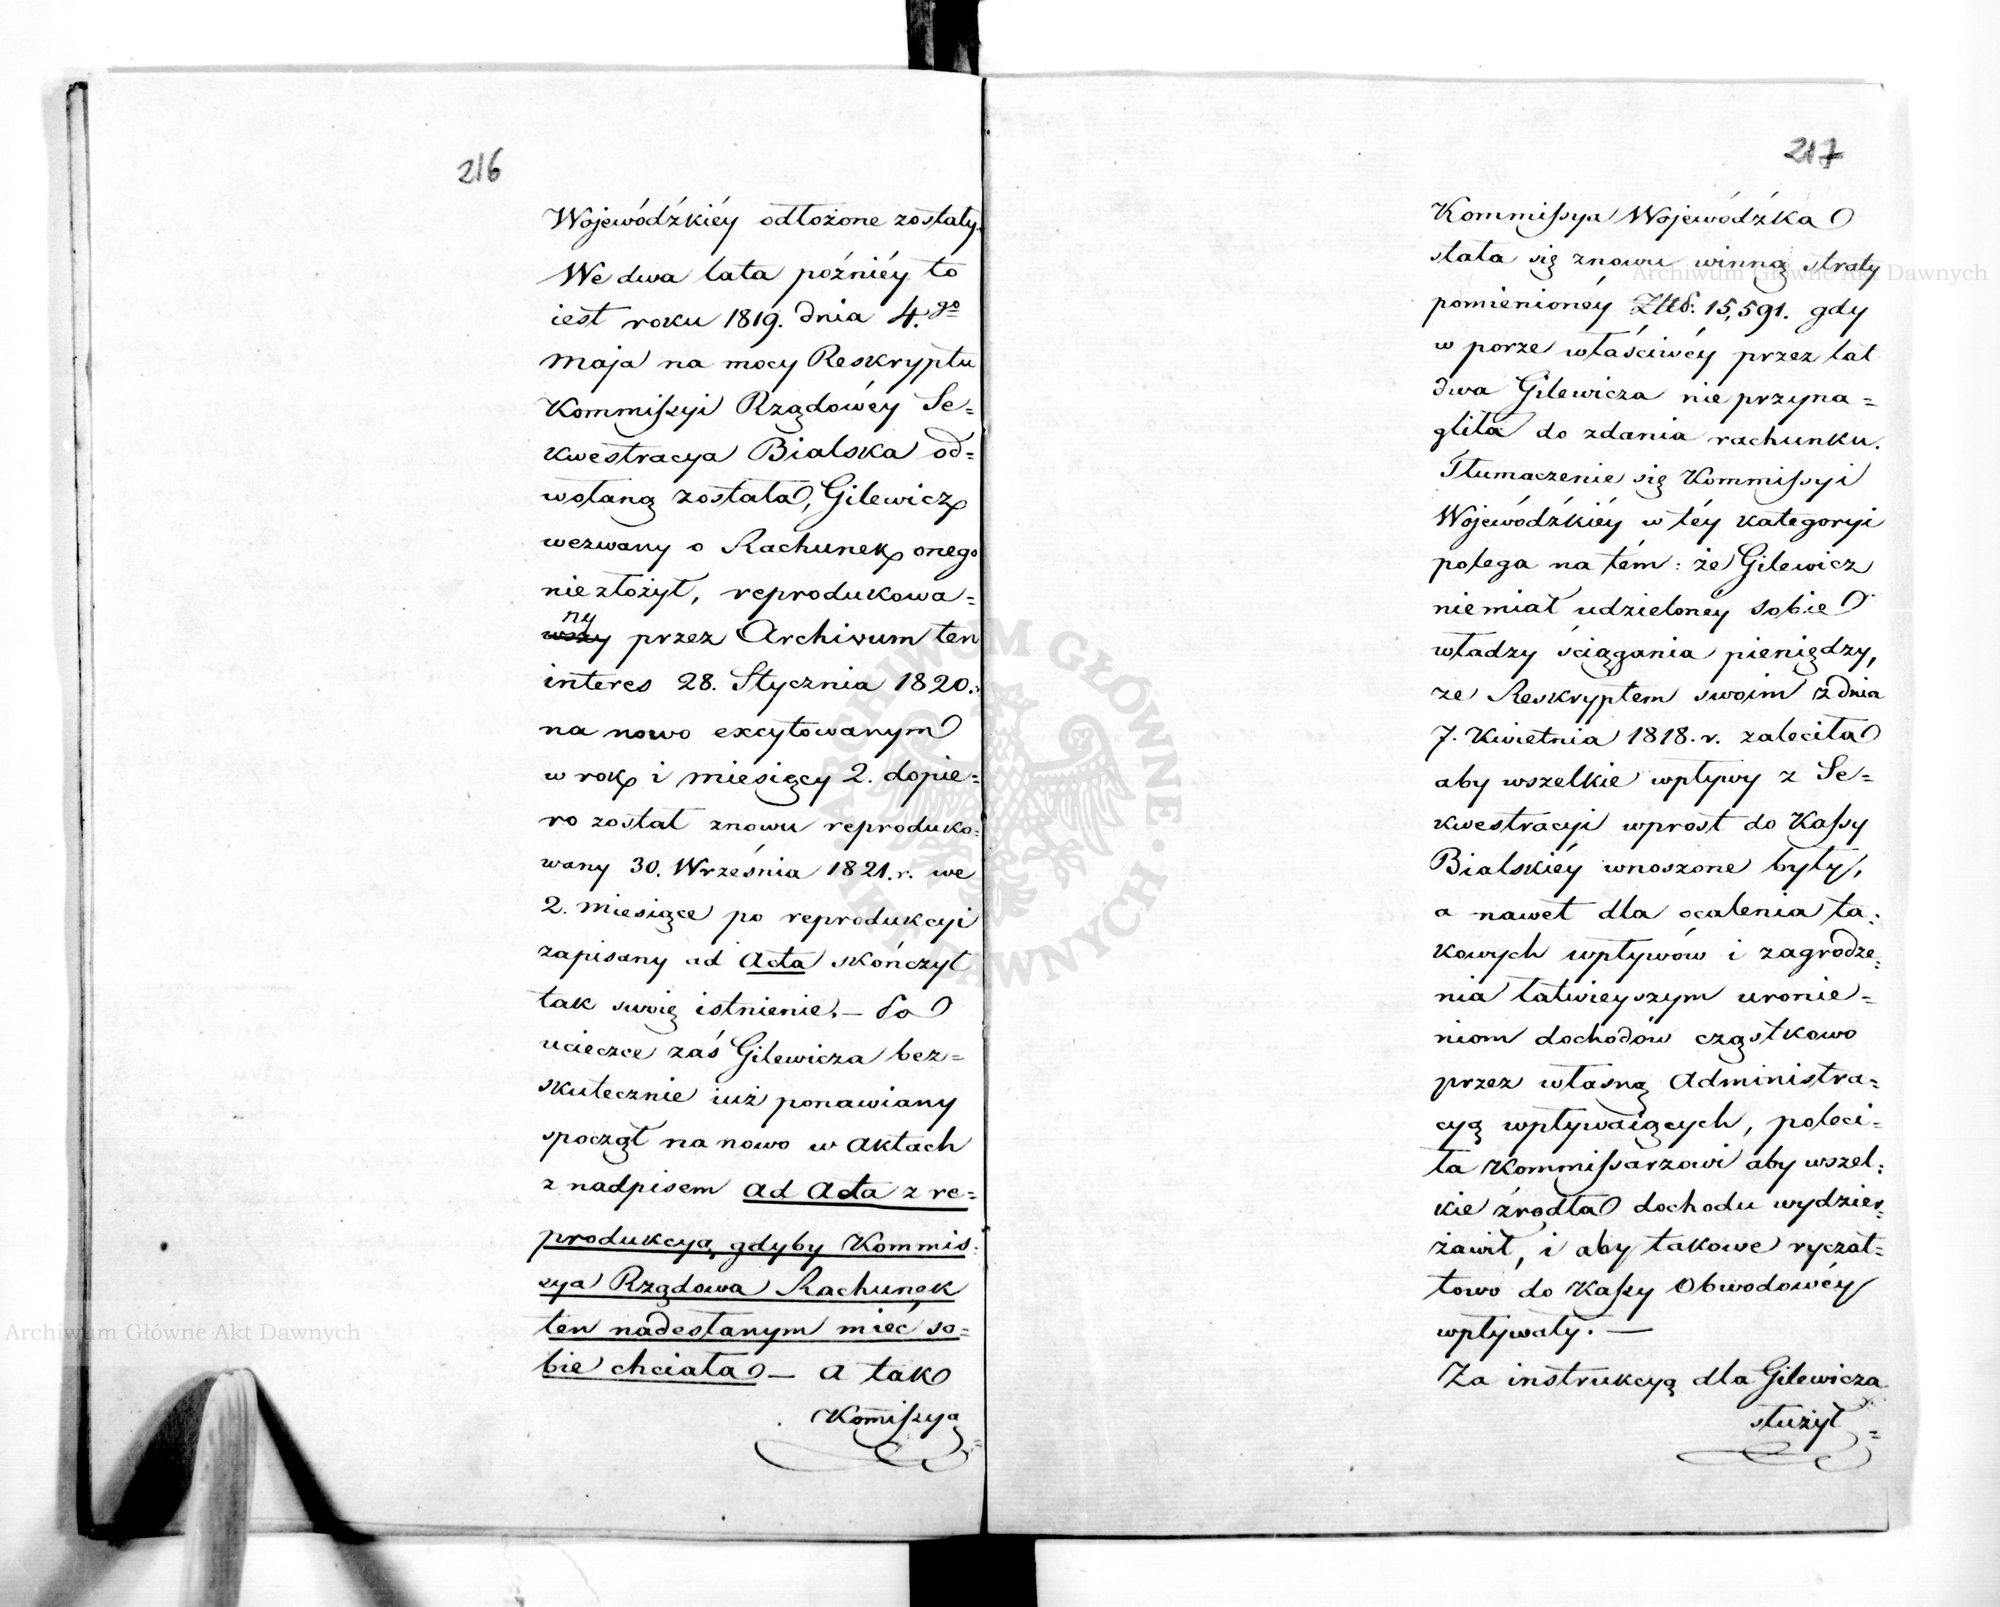 216
Wojewódźkiéy odłożone zostały.
We dwa lata poźniéy to
iest roku 1819. dnia 4.go
Maja na mocy Reskryptu
Kommissyi Rządowéy Se=
kwestracya Bialska od=
wołaną została, Gilewicz
wezwany o Rachunek onego
nie złożył, reprodukowa=
ny
wszy przez Archivum ten
interes 28. Stycznia 1820.
na nowo excytowanym
w rok i miesięcy 2. dopie=
ro został znowu reproduko=
wany 30. Września 1821. r. we
2. Miesiące po reprodukcyi
zapisany ad Acta skończył
tak swoię istnienie. — Po
ucieczce zaś Gilewicza bez=
skutecznie iuż ponawiany
spoczął na nowo w Aktach
z nadpisem ad Acta z re=
produkcyą, gdyby Kommis=
sya Rządowa Rachunek
ten nadesłanym mieć so=
bie chciała — A tak
Komissya
217
Kommissya Wojewódźka
stała się znowu winną straty
pomienionéy Złt. 15,591. gdy
w porze właściwéy przez lat
dwa Gilewicza nie przyna=
gliła do zdania rachunku.
Tłumaczenie się Kommissyi
Wojewódźkiéy w téy kategoryi
polega na tém: że Gilewicz
niemiał udzielonéy sobie
władzy ściągania pieniędzy,
że Reskryptem swoim z dnia
7. Kwietnia 1818. r. zaleciła
aby wszelkie wpływy z Se=
kwestracyi wprost do Kassy
Bialskiéy wnoszone były,
a nawet dla ocalenia ta=
kowych wpływów i zagrodze=
nia łatwieyszym uronie=
niom dochodów cząstkowo
przez własną Administra=
cyą wpływaiących, poleci=
ła Kommissarzowi aby wszel=
kie źrodła dochodu wydzier=
żawił, i aby takowe ryczał=
towo do Kassy Obwodowéy
wpływały. —
Za instrukcyą dla Gilewicza
służył
Archiwum Główne Akt Dawnych
Archiwum Główne Akt Dawnych
ARCHIWUM GŁÓWNE AKT DAWNYCH